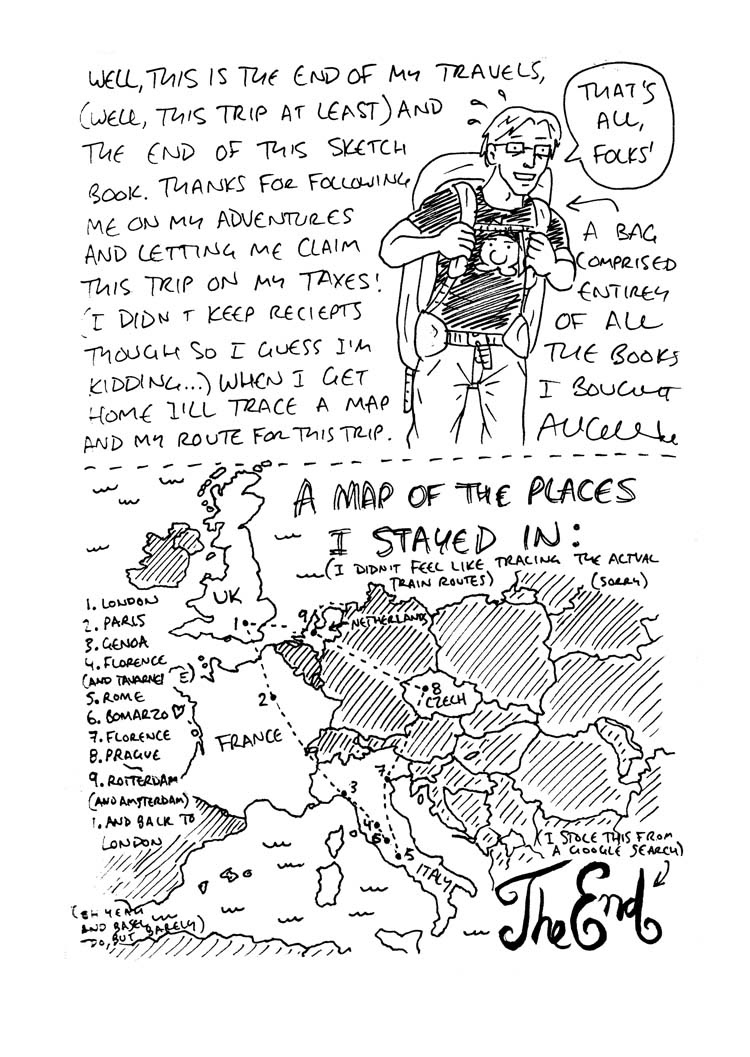 WELL, THIS IS THE END OF MY TRAVELS,
(WELL, THIS TRIP AT LEAST) AND
THE END OF THIS SKETCH
BOOK. THANKS FOR FOLLOWING
ME ON MY ADVENTURES
AND LETTING ME CLAIM
THIS TRIP ON MY TAXES!
(I DIDN'T KEEP RECIEPTS
THOUGH SO I GUESS I'M
KIDDING...) WHEN I GET
HOME I'LL TRACE A MAP
AND MY ROUTE FOR THIS TRIP.
THAT'S
ALL,
FOLKS'
A BAG
COMPRISED
ENTIREY
OF ALL
THE BOOKS
I BOUGHT
A MAP OF THE PLACES
I STAYED IN:
(I DIDN'T FEEL LIKE TRACING THE ACTUAL
TRAIN ROUTES) (SORRY)
1. LONDON
2. PARIS
3. GENOA
4. FLORENCE
(AND E)
5. ROME
6. BOMARZO
7. FLORENCE
8. PRAGUE
9. ROTTERDAM
(AND AMSTERDAM)
1. AND BACK TO
LONDON
UK
1
9
NETHERLANDS
8
CZECH
2
FRANCE
7
3
4
6
5
ITALY
(OH YEAH
AND BASEL
TOO, BUT BARELY)
(I STOLE THIS FROM
A GOOGLE SEARCH)
The End